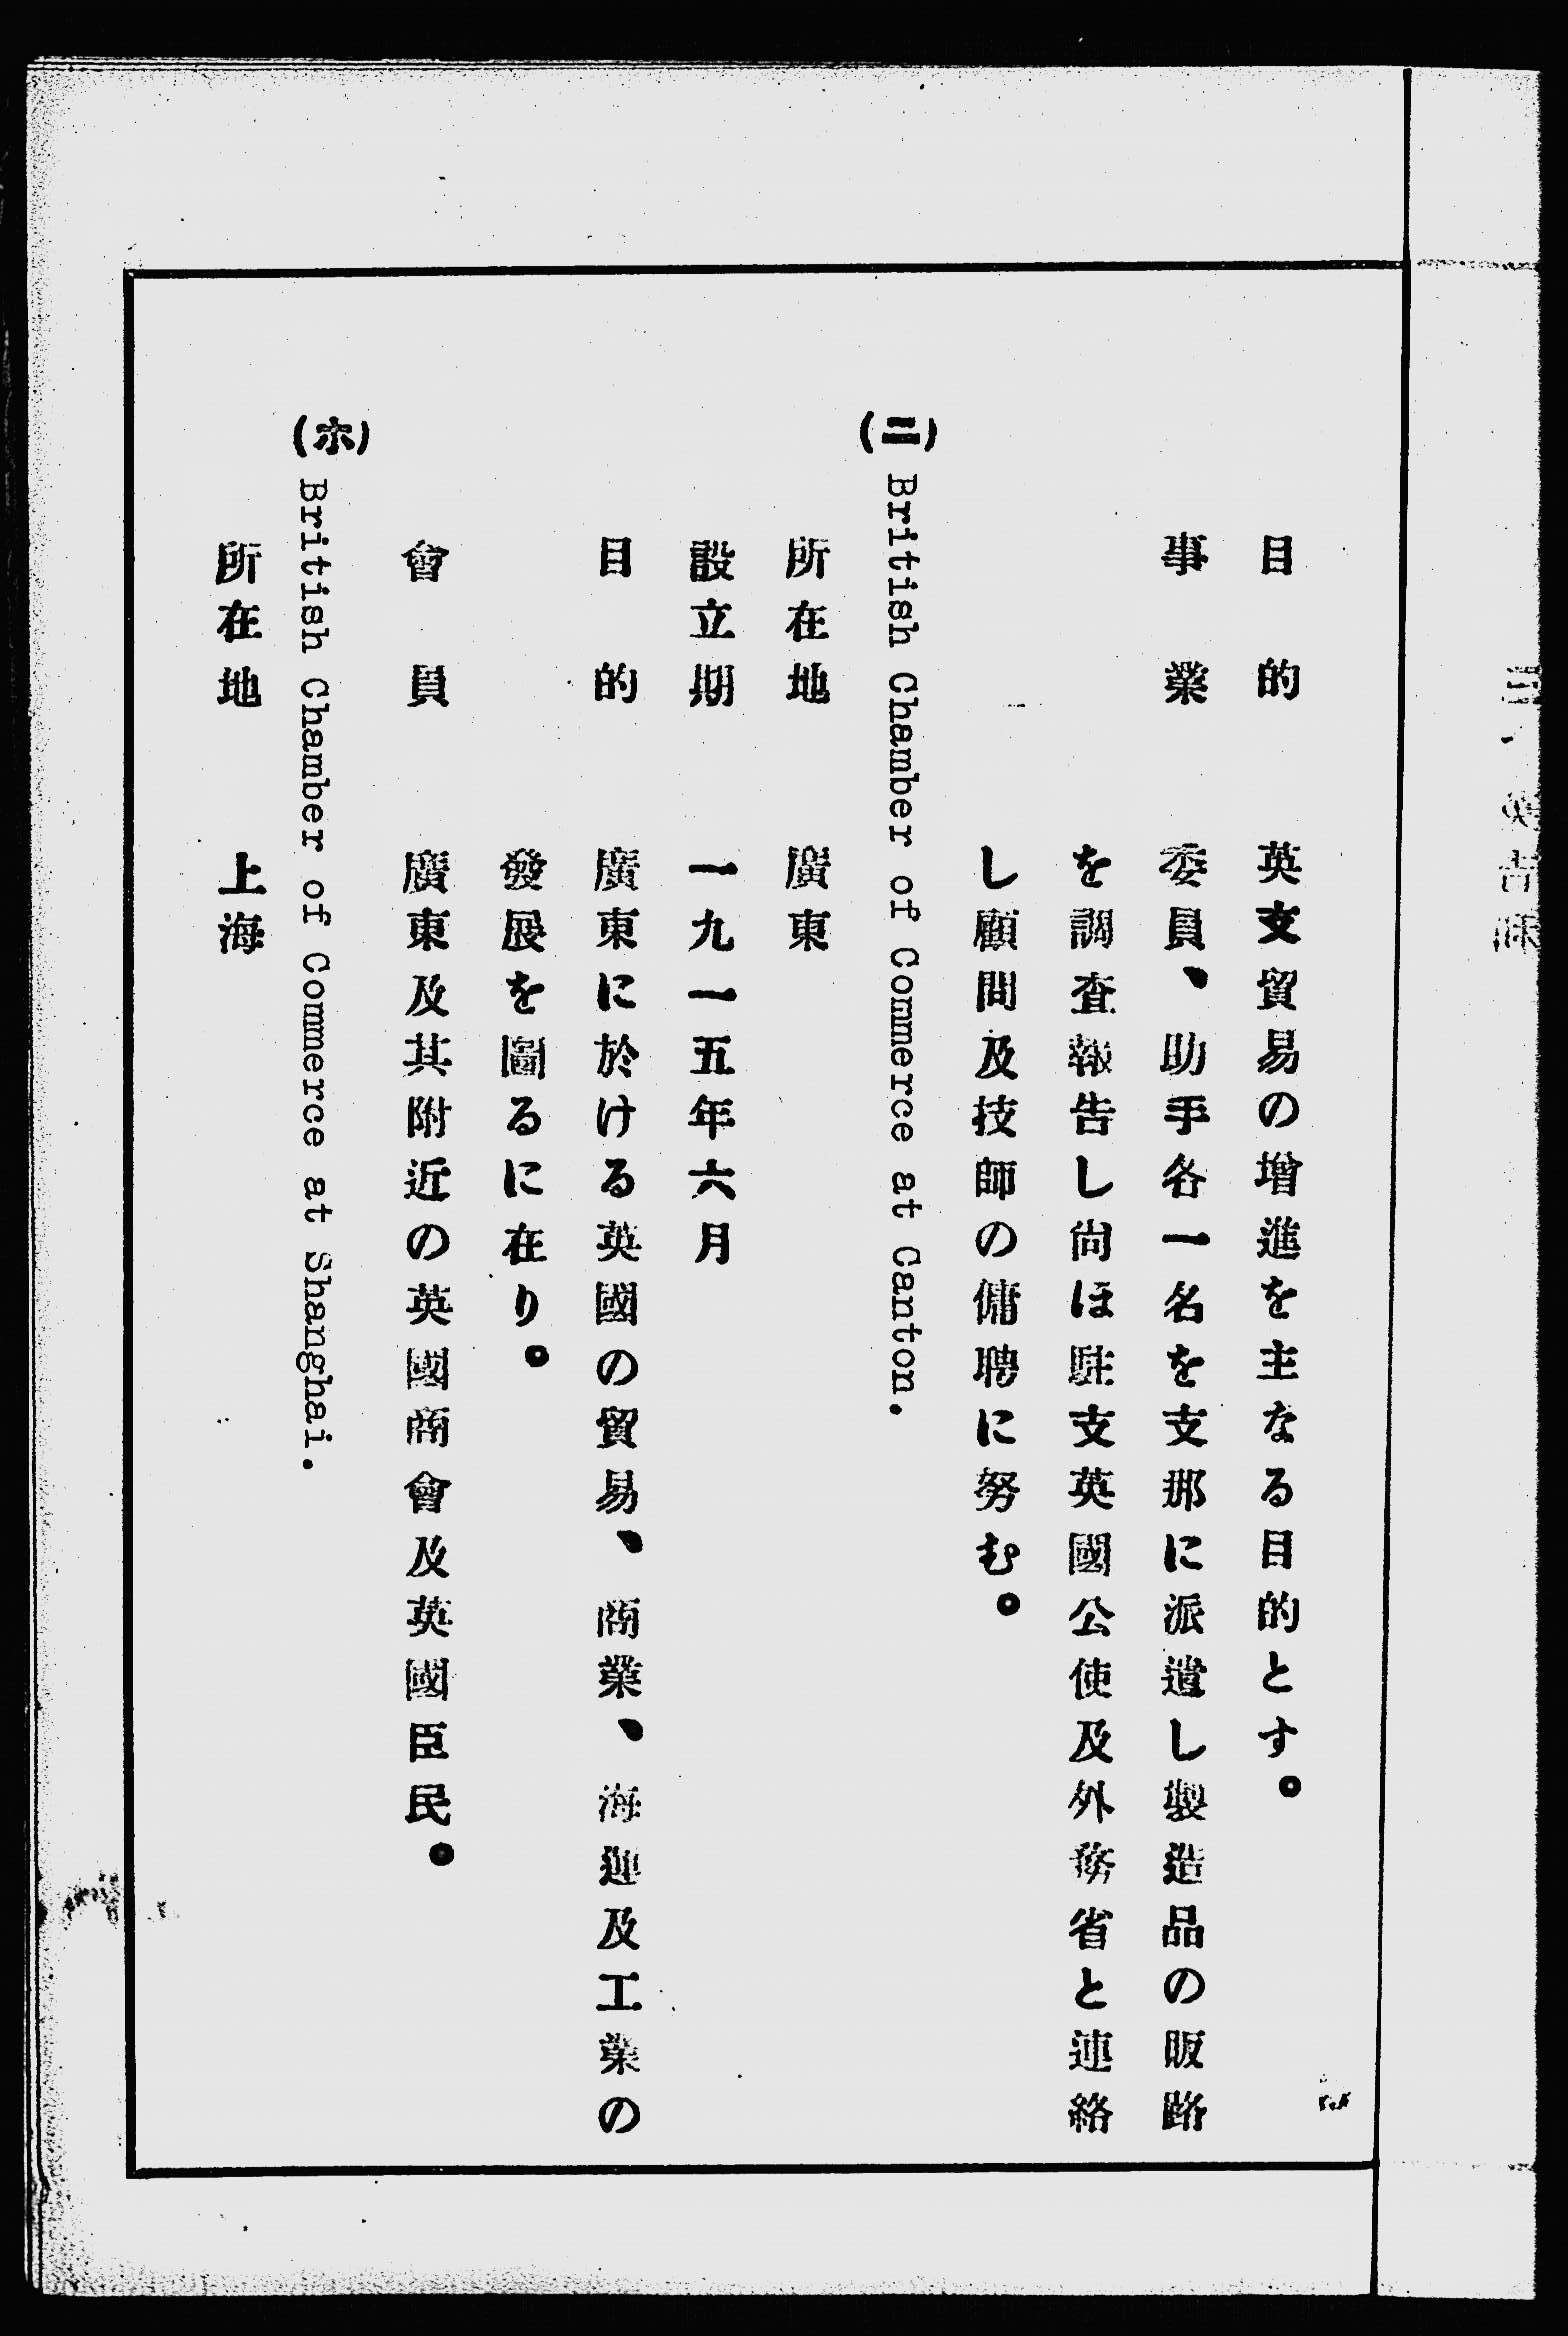 目的　英支貿易の增進を主なる目的とす。
事業　委員、助手各一名を支那に派遣し製造品の販路
を調査報告し尙ほ駐支英國公使及外務省と連絡
し顧問及技師の傭聘に努む。
(ニ) British Chamber of Commerce at Canton.
所在地　廣東
設立期　一九一五年六月
目的　廣東に於ける英國の貿易、商業、海運及工業の
發展を圖るに在り。
會員　廣東及其附近の英國商會及英國臣民。
(ホ) British Chamber of Commerce at Shanghai.
所在地　上海